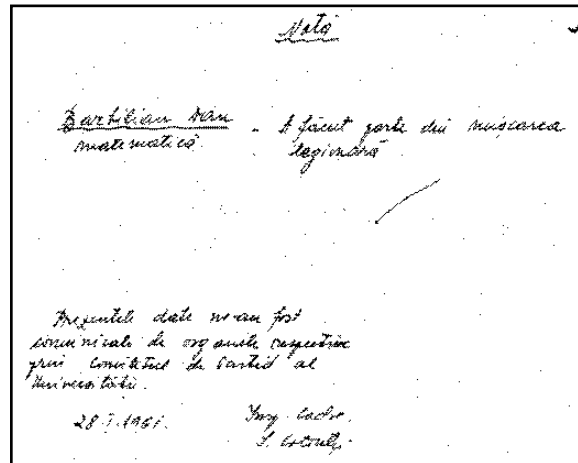 Notă
Barbilian Dan - A făcut parte din mișcarea
matematică legionară
Prezentele date ne-au fost
comunicate de organele respective
prin Comitetul de Partid al
Universității.
28.I.1961. Insp. cadre
S.